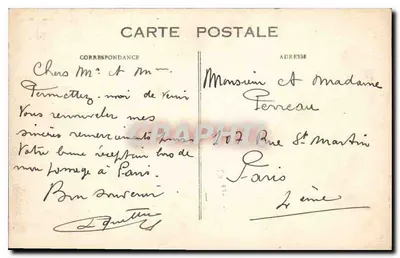 CARTE POSTALE
CORRESPONDANCE
Chers Mr et Mme
Permettez-moi de venir
Vous renouveler mes
sincères remerciements pour
Votre bonne réception lors de
mon passage à Paris.
Bon souvenir
ADRESSE
Monsieur et Madame
Perreau
207 Rue St Martin
Paris
4ème